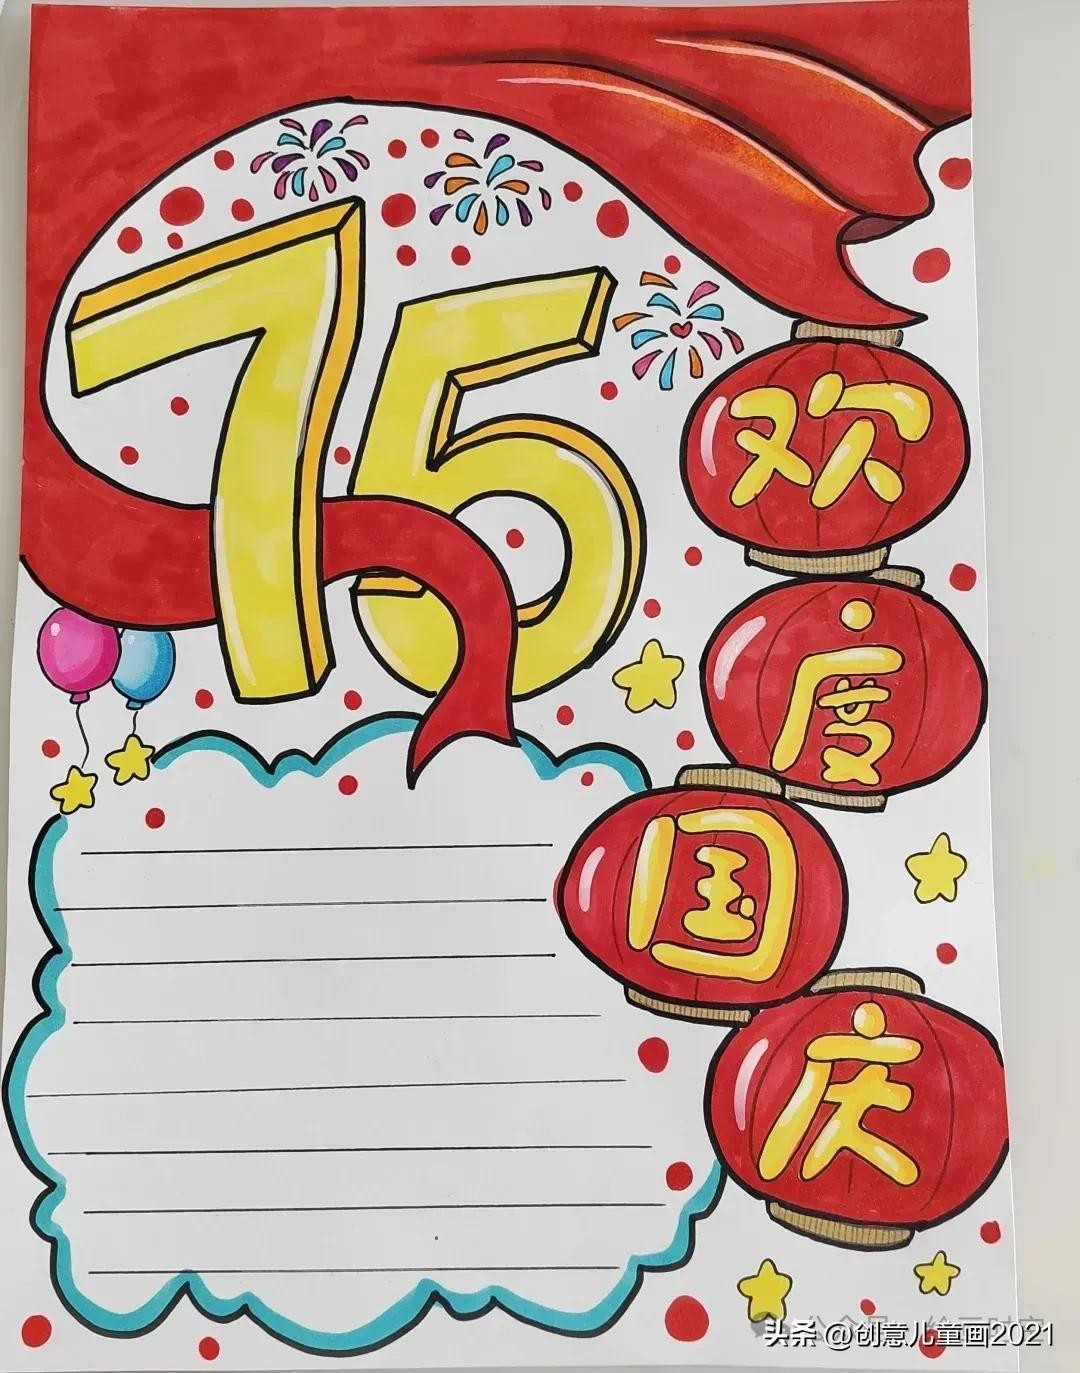 75
欢
度
国
庆
头条 @创意儿童画2021